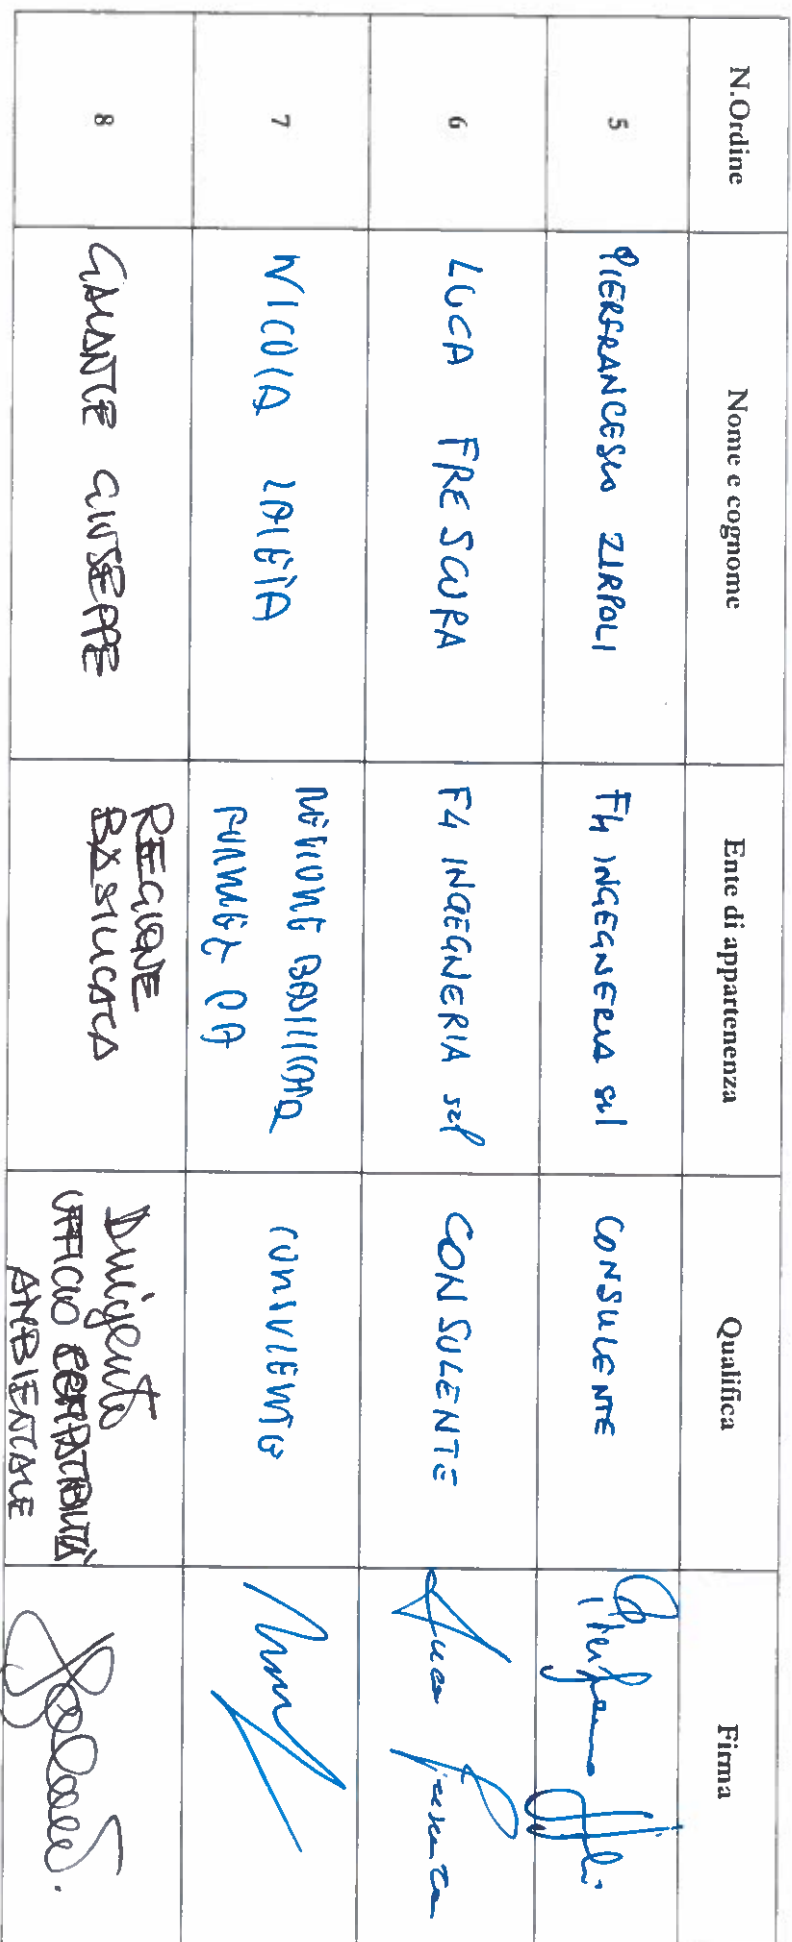 N.Ordine Nome e cognome Ente di appartenenza Qualifica Firma
5 PIERFRANCESCO ZIRPOLI F4 INGEGNERIA srl CONSULENTE
6 LUCA FRESCURA F4 INGEGNERIA srl CONSULENTE Luca Frescura
7 NICOLA REGIONE BASILICATA
FORMEZ PA CONSULENTE
8 GALANTE GIUSEPPE REGIONE
BASILICATA Dirigente
UFFICIO COMPATIBILITÀ
AMBIENTALE